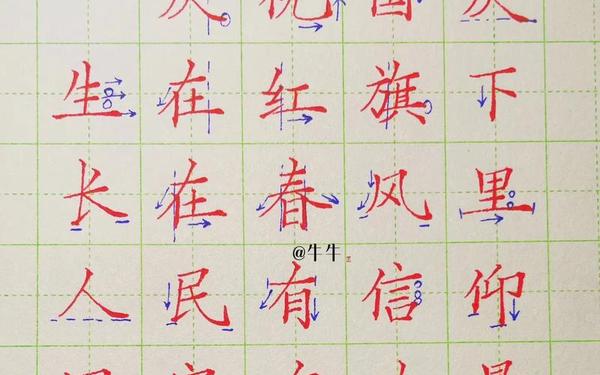 庆祝国庆
生在红旗下
长在春风里
@牛牛
人民有信仰